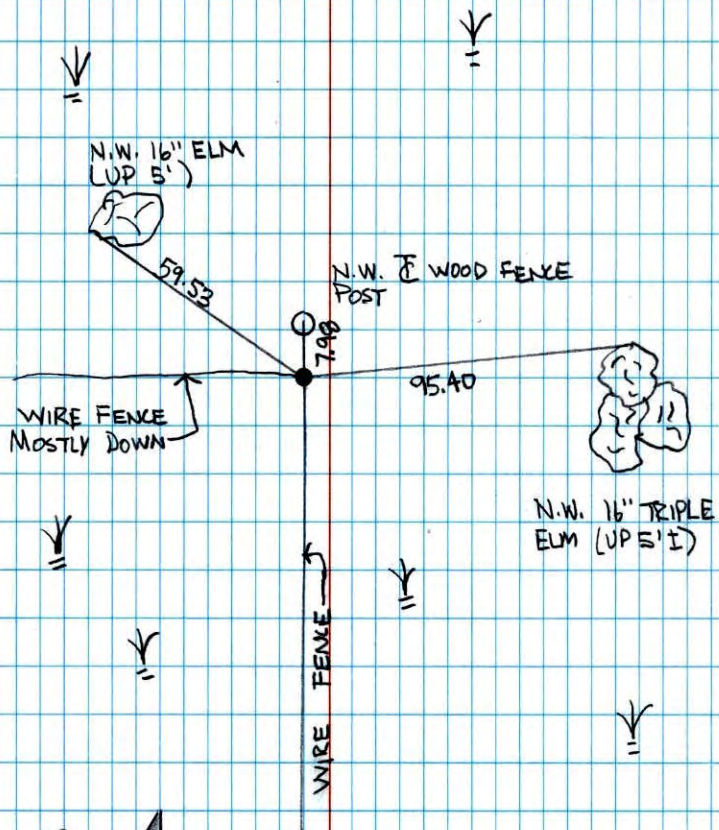 N.W. 16" ELM
(UP 5')
59.53
N.W. ℄ WOOD FENCE
POST
7.98
95.40
WIRE FENCE
MOSTLY DOWN
N.W. 16" TRIPLE
ELM (UP 5'±)
WIRE FENCE